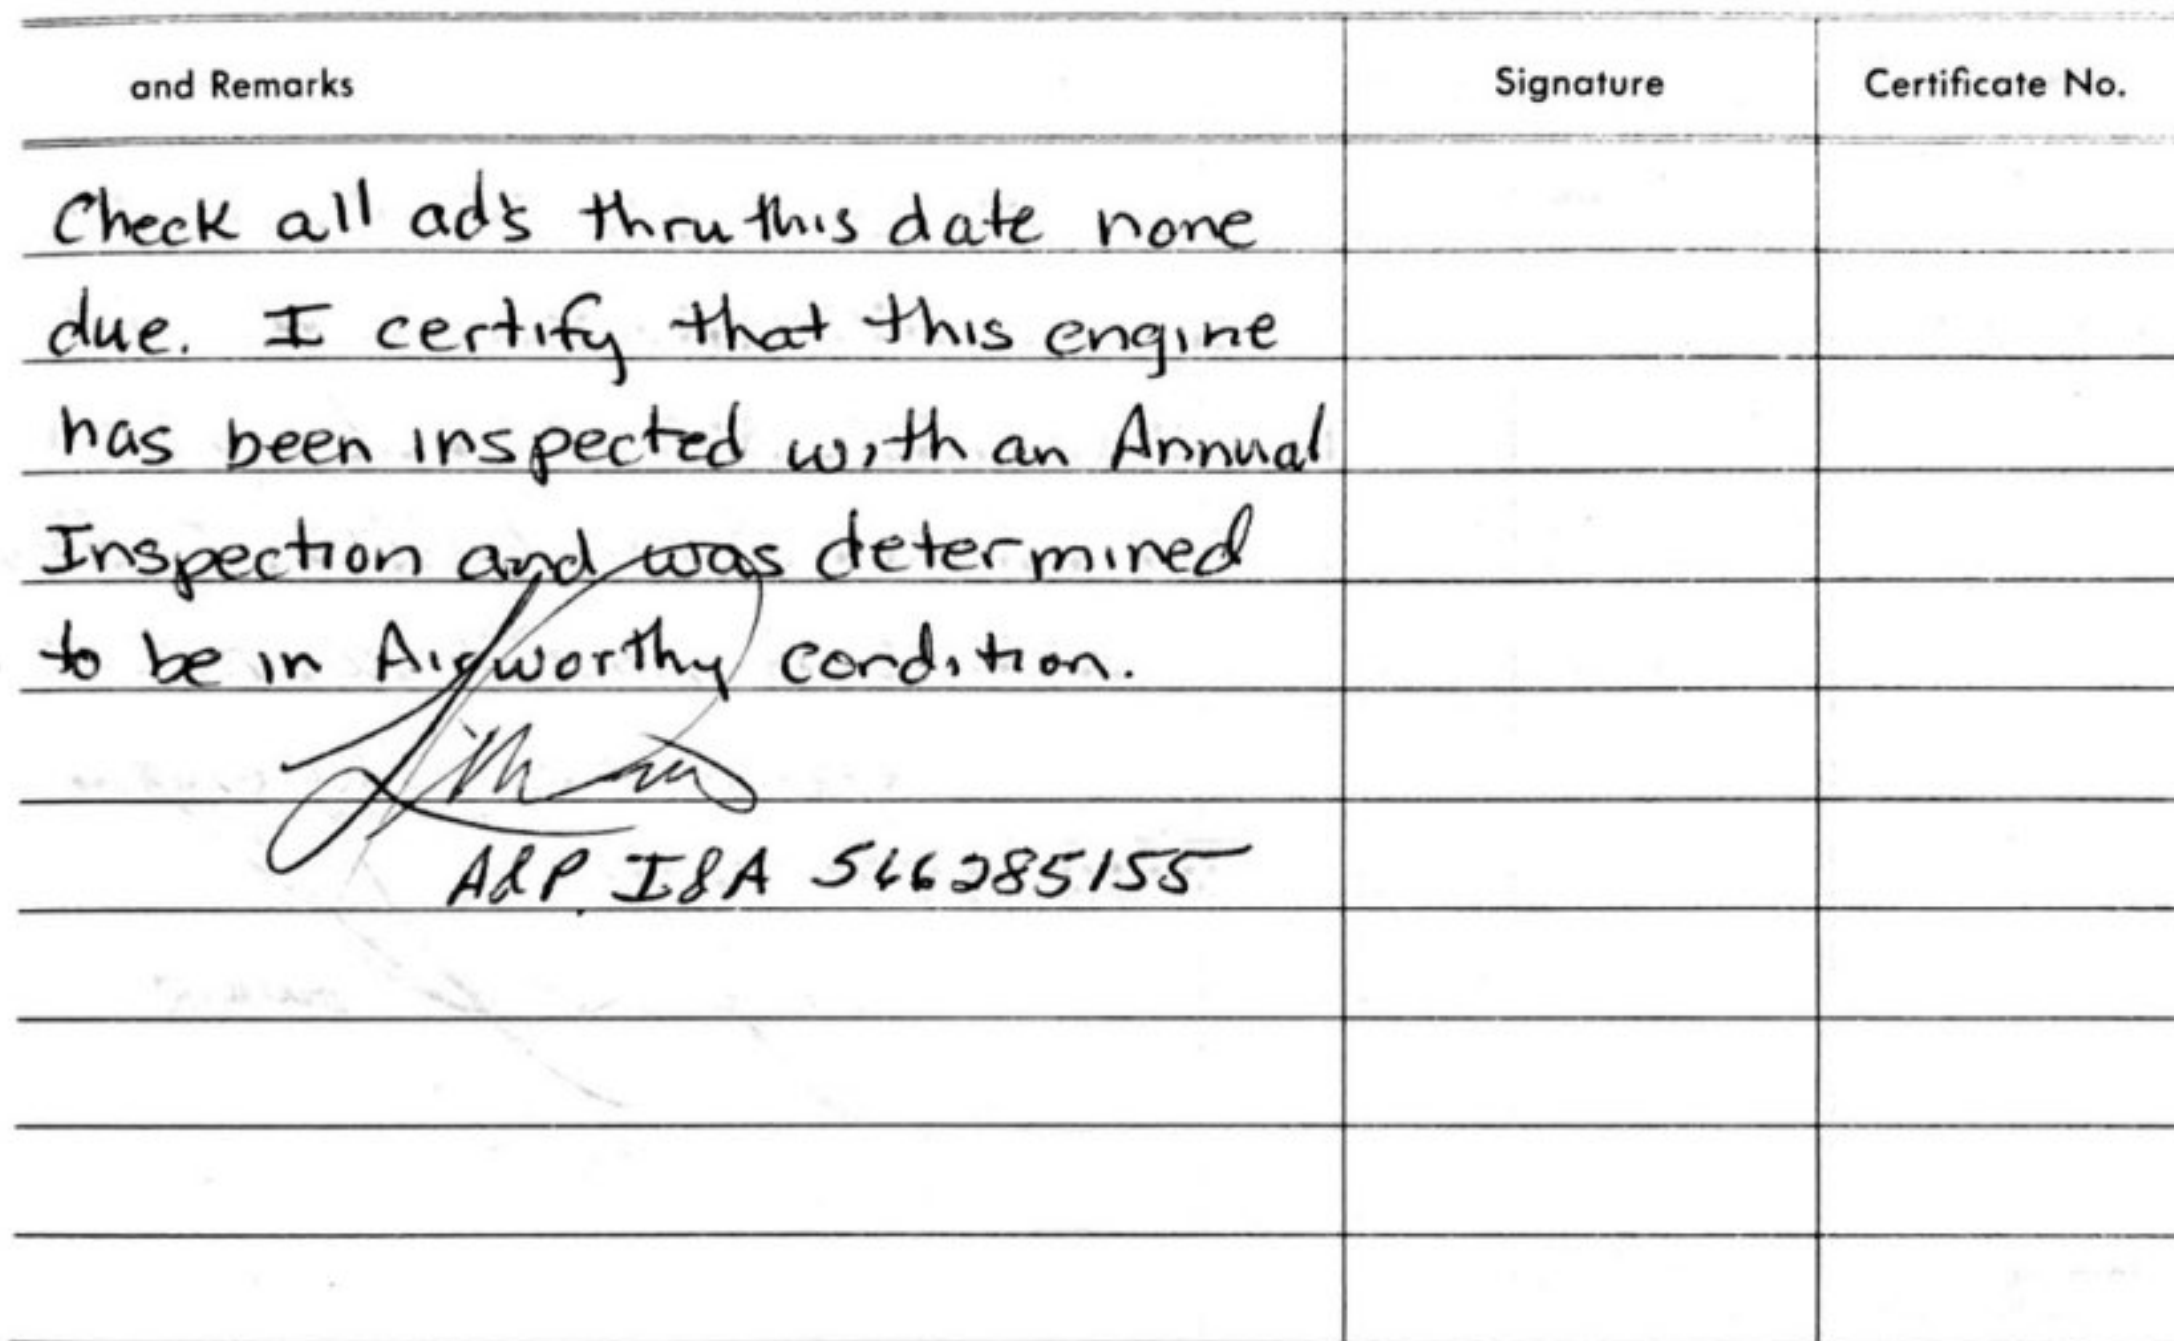 and Remarks Signature Certificate No.
Check all ad's thru this date none
due. I certify that this engine
has been inspected with an Annual
Inspection and was determined
to be in Airworthy condition.
A&P I&A 566285155